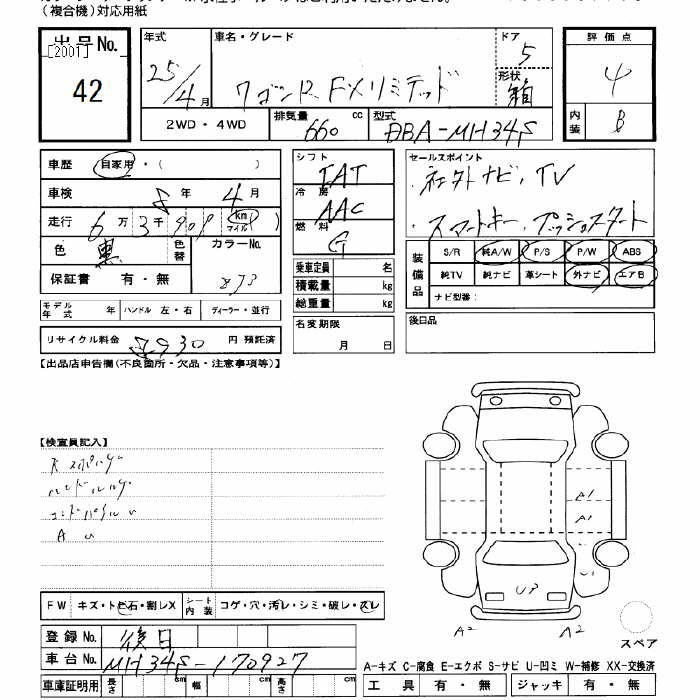 （複合機）対応用紙
出品No.
[2001]
42
年式
25/4月
車名・グレード
ワゴンR FXリミテッド
ドア
5
形状
箱
評価点
4
内装
B
2WD・4WD
排気量 660 cc
型式 DBA-MH34S
車歴 自家用・( )
車検 8年 4月
走行 6万3千901 km マイル
色 黒
色替
カラーNo. Z73
保証書 有・無
シフト IAT
冷房 AAC
燃料 G
乗車定員 名
積載量 kg
総重量 kg
名変期限
月 日
セールスポイント
社外ナビ、TV
スマートキー、プッシュスタート
装備品
S/R 純A/W P/S P/W ABS
純TV 純ナビ 革シート 外ナビ エアB
ナビ型番：
後日品
モデル年式 年 ハンドル 左・右 ディーラー・並行
リサイクル料金 円 預託済
【出品店申告欄(不良箇所・欠品・注意事項等)】
【検査員記入】
A U
A1
A1
U3
A2
A2
スペア
FW キズ・トビ石・割レX
シート内装 コゲ・穴・汚レ・シミ・破レ・スレ
登録No. 後日
車台No. MH34S-170927
車庫証明用 長さ cm 幅 cm 高さ cm
A-キズ C-腐食 E-エクボ S-サビ U-凹ミ W-補修 XX-交換済
工具 有・無 ジャッキ 有・無